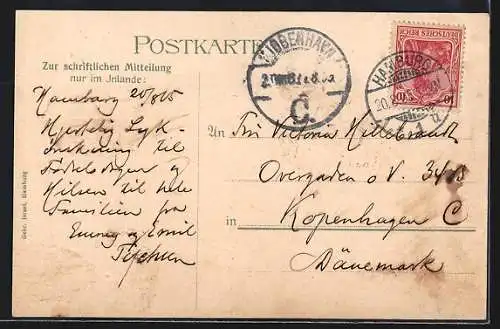 POSTKARTE
Zur schriftlichen Mitteilung
nur im Inlande:
Hamburg 20/8 05
Hjertelig Lyk-
ønskning til
Fødselsdagen og
Hilsen til hele
Familien fra
Emmy og Emil
KJØBENHAVN
C.
HAMBURG
DEUTSCHES REICH
10 10
An Frk Victoria Hillebrandt
Overgaden o. V.
in Kopenhagen C
Dänemark